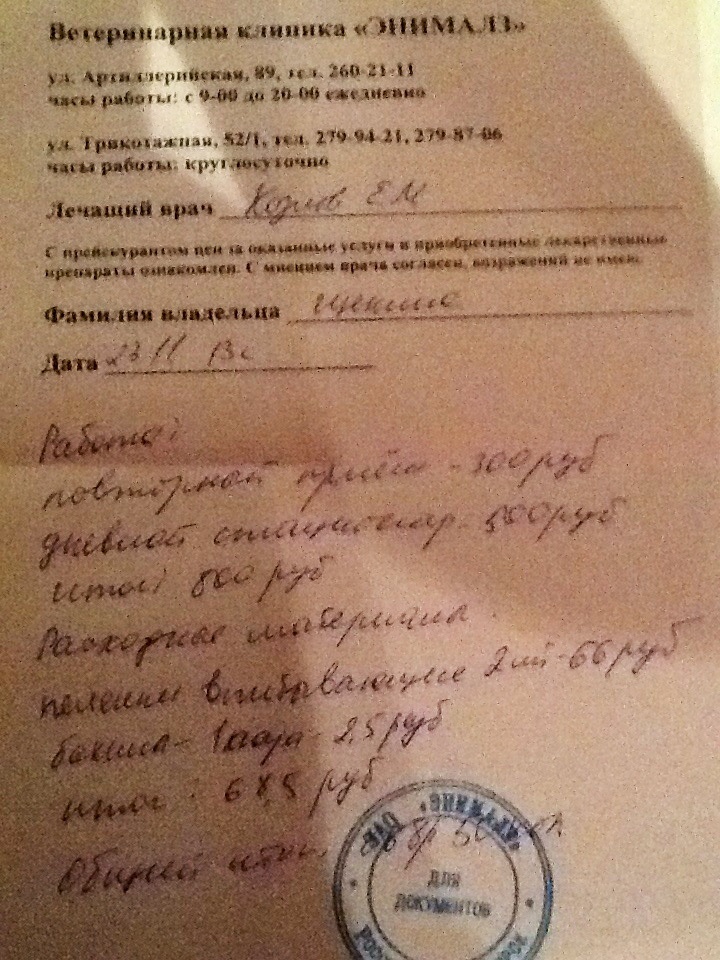 Ветеринарная клиника «ЭНИМАЛЗ»
ул. Артиллерийская, 89, тел. 260-21-11
часы работы: с 9-00 до 20-00 ежедневно
ул. Трикотажная, 52/1, тел. 279-94-21, 279-87-06
часы работы: круглосуточно
Лечащий врач Козлов Е М
С прейскурантом цен за оказанные услуги и приобретенные лекарственные
препараты ознакомлен. С мнением врача согласен, возражений не имею.
Фамилия владельца
Дата 23 11 13г
Работа:
повторный приём - 300 руб
дневной стационар - 500 руб
итог: 800 руб
Расходные материалы
пеленки впитывающие 2 шт - 66 руб
бахилы - 1 пара - 2,5 руб
итог: 68,5 руб
Общий итог:
ООО «ЭНИМАЛЗ»
ДЛЯ
ДОКУМЕНТОВ